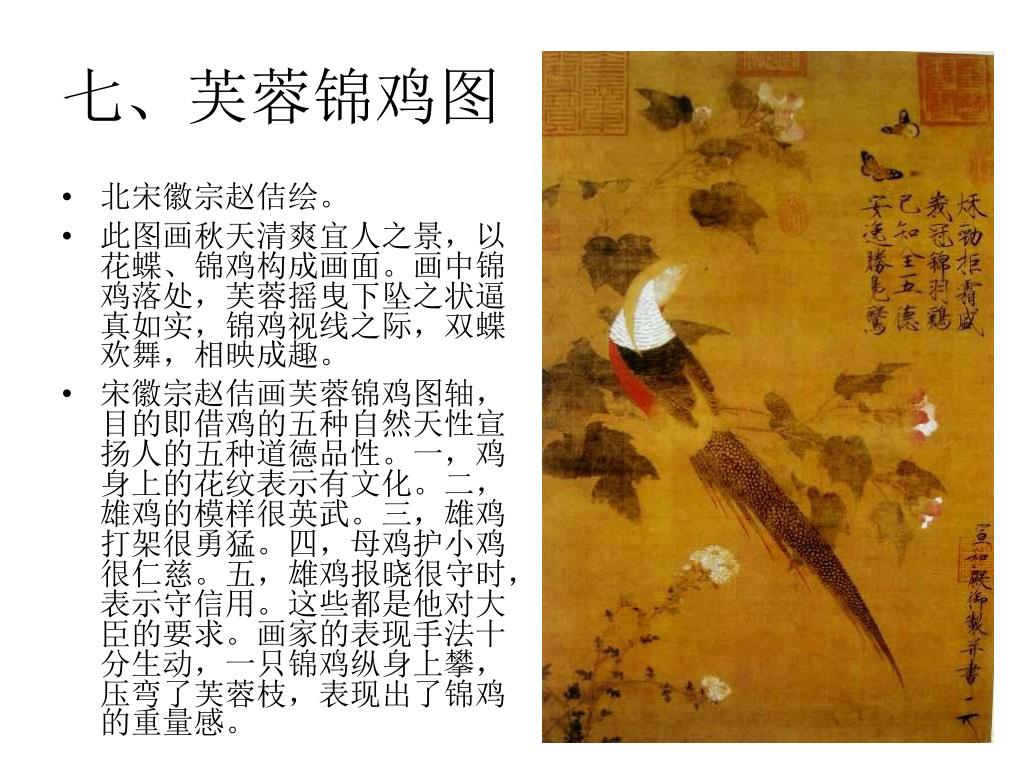 七、芙蓉锦鸡图
• 北宋徽宗赵佶绘。
• 此图画秋天清爽宜人之景，以
花蝶、锦鸡构成画面。画中锦
鸡落处，芙蓉摇曳下坠之状逼
真如实，锦鸡视线之际，双蝶
欢舞，相映成趣。
• 宋徽宗赵佶画芙蓉锦鸡图轴，
目的即借鸡的五种自然天性宣
扬人的五种道德品性。一，鸡
身上的花纹表示有文化。二，
雄鸡的模样很英武。三，雄鸡
打架很勇猛。四，母鸡护小鸡
很仁慈。五，雄鸡报晓很守时，
表示守信用。这些都是他对大
臣的要求。画家的表现手法十
分生动，一只锦鸡纵身上攀，
压弯了芙蓉枝，表现出了锦鸡
的重量感。
秋勁拒霜盛
峩冠錦羽鷄
已知全五德
安逸勝鳧鷖
宣和殿御製并書